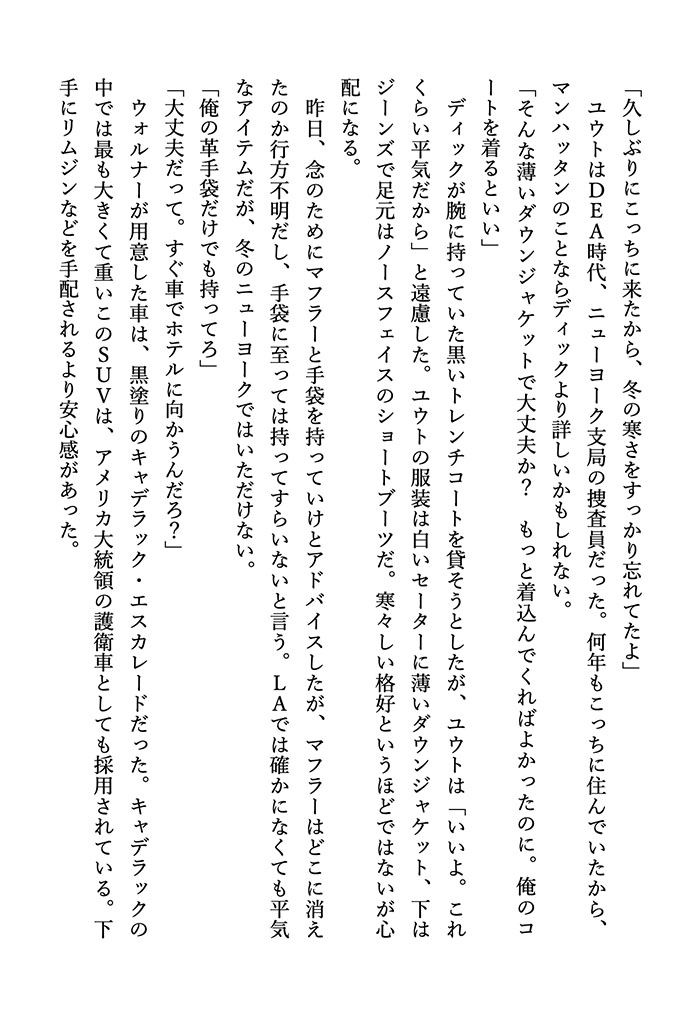 「久しぶりにこっちに来たから、冬の寒さをすっかり忘れてたよ」
　ユウトはＤＥＡ時代、ニューヨーク支局の捜査員だった。何年もこっちに住んでいたから、
マンハッタンのことならディックより詳しいかもしれない。
「そんな薄いダウンジャケットで大丈夫か？　もっと着込んでくればよかったのに。俺のコ
ートを着るといい」
　ディックが腕に持っていた黒いトレンチコートを貸そうとしたが、ユウトは「いいよ。これ
くらい平気だから」と遠慮した。ユウトの服装は白いセーターに薄いダウンジャケット、下は
ジーンズで足元はノースフェイスのショートブーツだ。寒々しい格好というほどではないが心
配になる。
　昨日、念のためにマフラーと手袋を持っていけとアドバイスしたが、マフラーはどこに消え
たのか行方不明だし、手袋に至っては持ってすらいないと言う。ＬＡでは確かになくても平気
なアイテムだが、冬のニューヨークではいただけない。
「俺の革手袋だけでも持ってろ」
「大丈夫だって。すぐ車でホテルに向かうんだろ？」
　ウォルナーが用意した車は、黒塗りのキャデラック・エスカレードだった。キャデラックの
中では最も大きくて重いこのＳＵＶは、アメリカ大統領の護衛車としても採用されている。下
手にリムジンなどを手配されるより安心感があった。